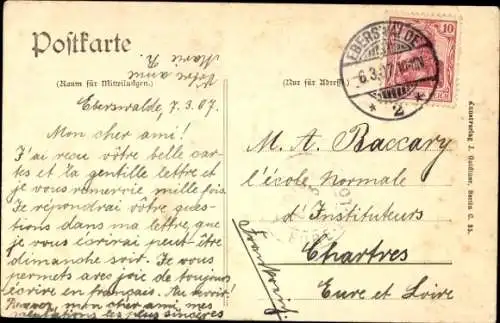 Postkarte
(Raum für Mitteilungen.)
Votre amie
Marie R.
(Nur für Adresse)
Eberswalde, 7.3.07.
Mon cher ami!
J'ai reçu vôtre belle car-
tes et la gentille lettre et
je vous remercie mille fois.
Je répondrai vôtre ques-
tions dans ma lettre, que
je vous écrirai peut-être
dimanche soir. Je vous
permets avec joie de toujours
écrire en français. Au revoir!
Recevez, mon cher ami mes
salutations les plus sincères
EBERSWALDE
6.3.07. 10-11N
* 2 *
10
M. A. Baccary
l'école Normale
d'Instituteurs
Chartres
Eure et Loire
Frankreich
Kunstverlag J. Goldiner, Berlin C. 25.